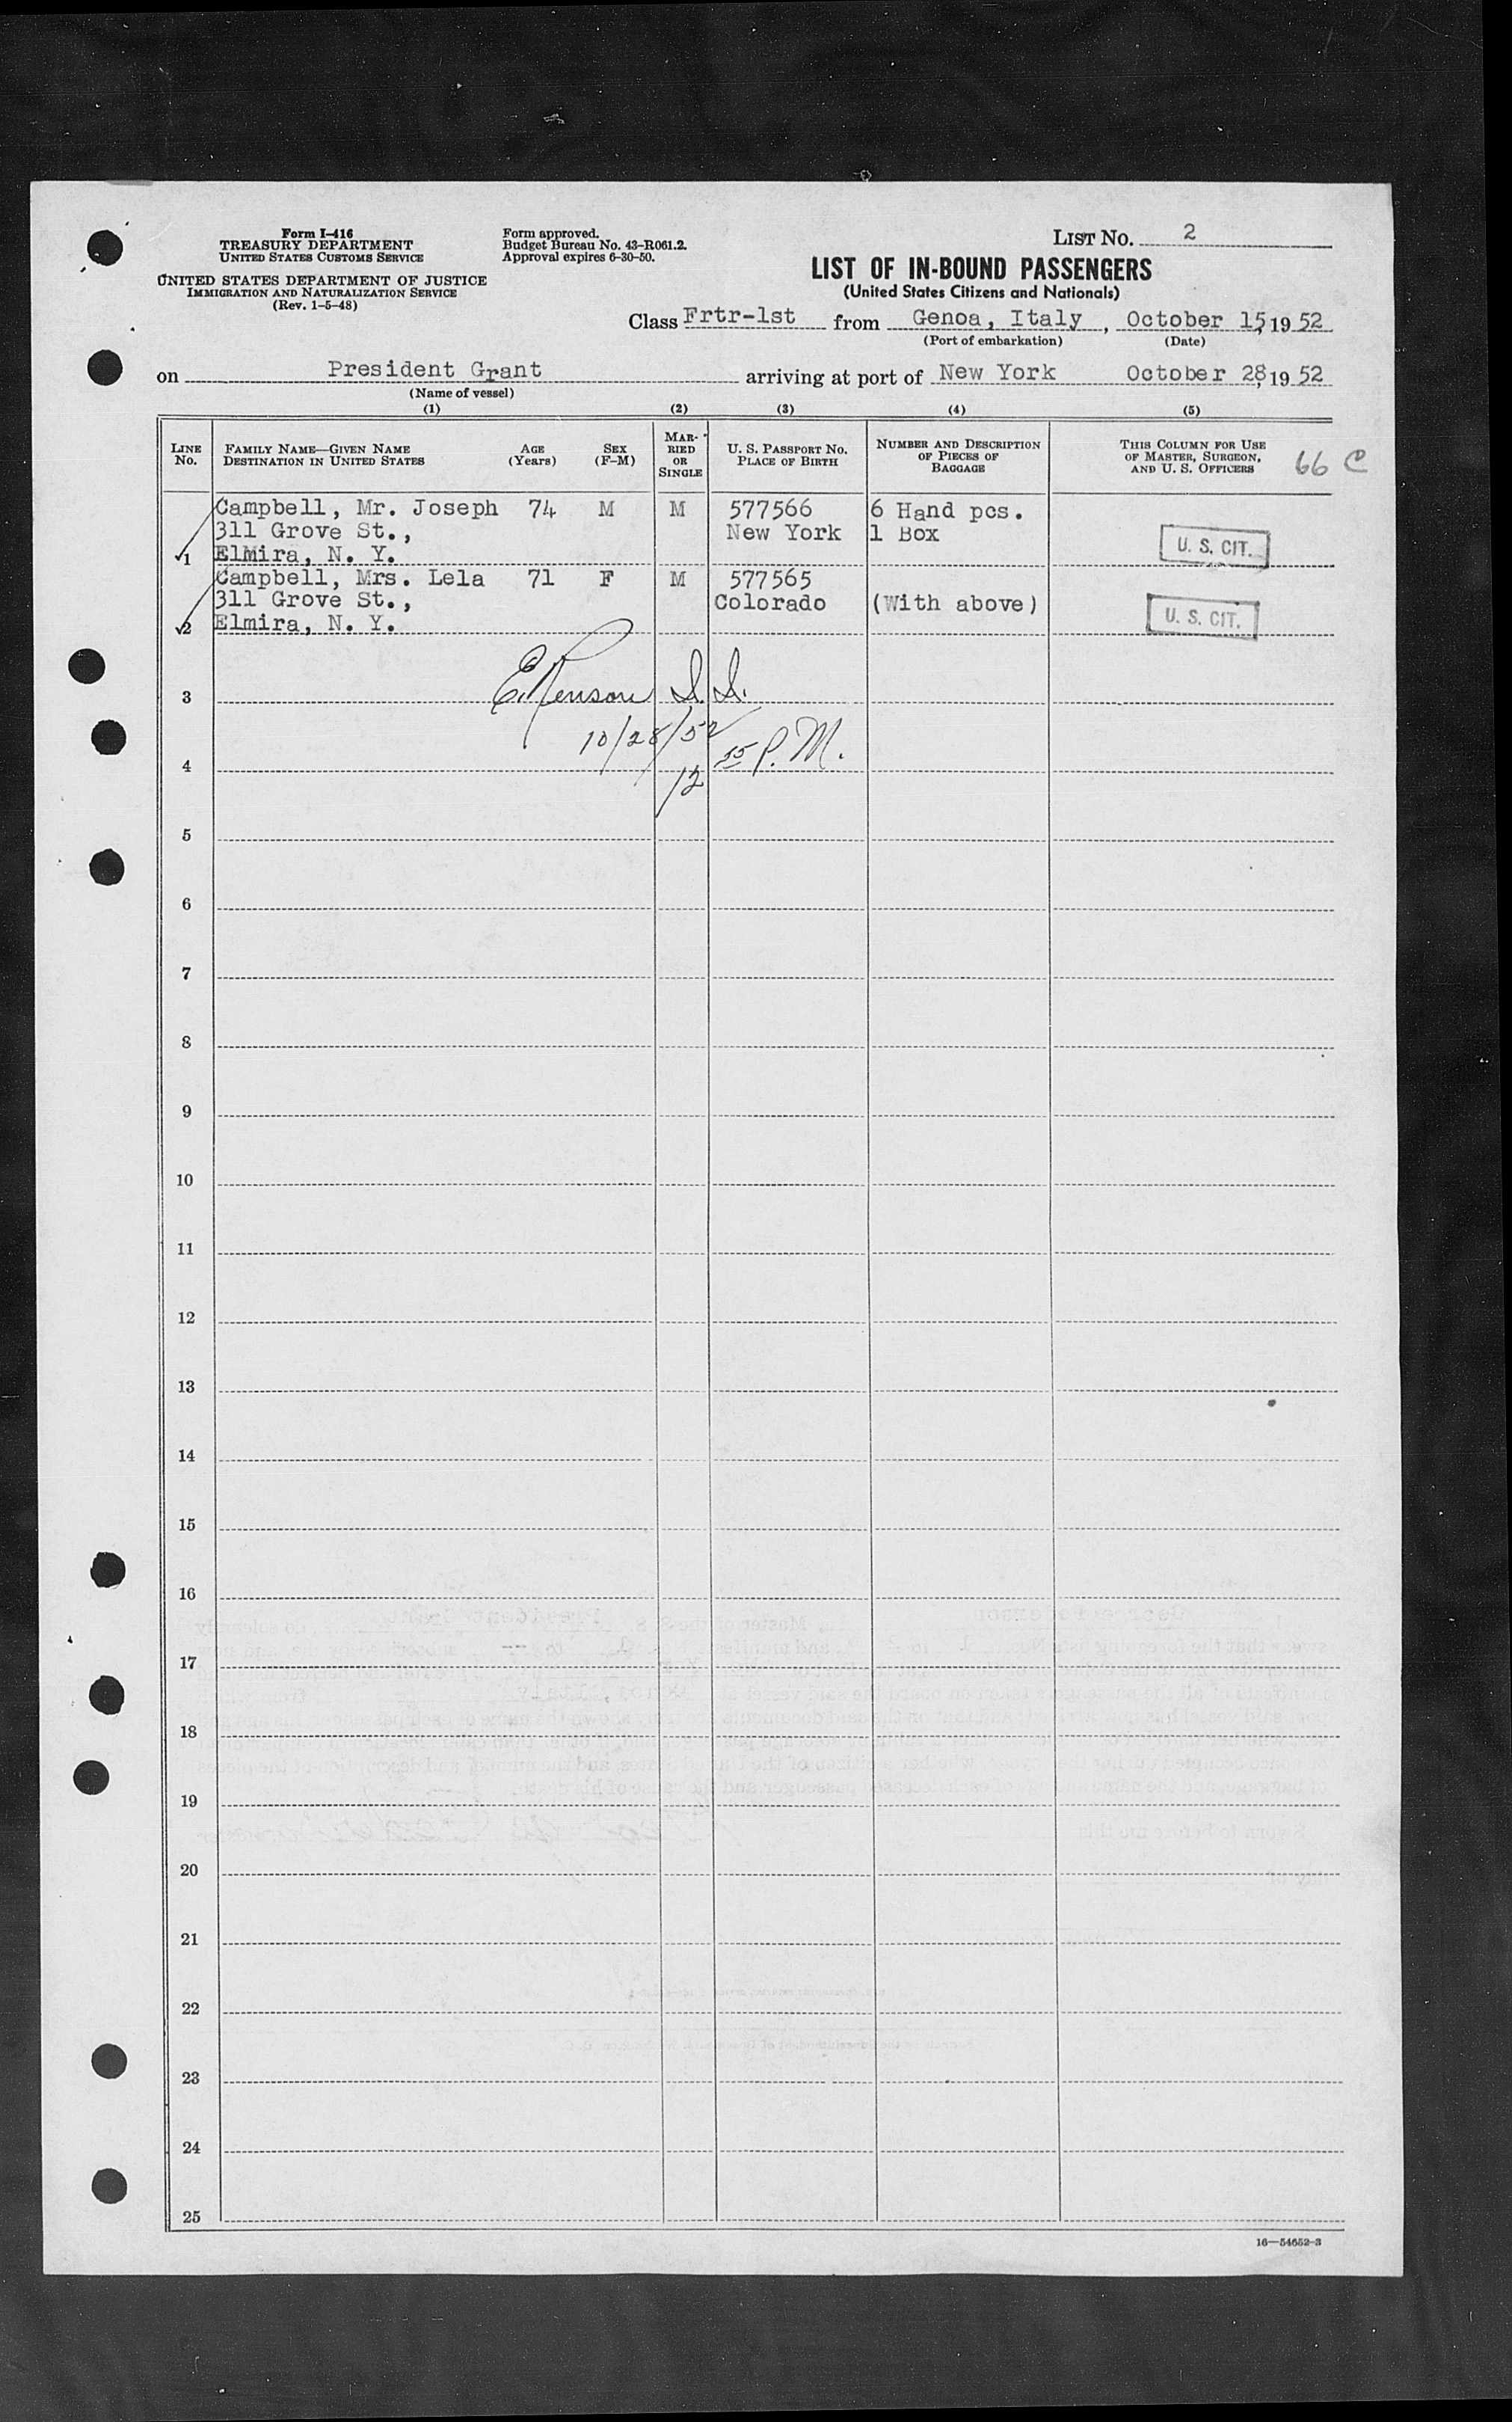 Form I-416
TREASURY DEPARTMENT
UNITED STATES CUSTOMS SERVICE
UNITED STATES DEPARTMENT OF JUSTICE
IMMIGRATION AND NATURALIZATION SERVICE
(Rev. 1-5-48)
Form approved.
Budget Bureau No. 43-R061.2.
Approval expires 6-30-50.
LIST NO. 2
LIST OF IN-BOUND PASSENGERS
(United States Citizens and Nationals)
Class Frtr-1st from Genoa, Italy, October 15, 1952
(Port of embarkation) (Date)
on President Grant arriving at port of New York October 28, 1952
(Name of vessel)
(1) (2) (3) (4) (5)
LINE NO. FAMILY NAME—GIVEN NAME DESTINATION IN UNITED STATES AGE (Years) SEX (F-M) MARRIED OR SINGLE U. S. PASSPORT NO. PLACE OF BIRTH NUMBER AND DESCRIPTION OF PIECES OF BAGGAGE THIS COLUMN FOR USE OF MASTER, SURGEON, AND U. S. OFFICERS 66 C
Campbell, Mr. Joseph 74 M M 577566 6 Hand pcs.
311 Grove St., New York 1 Box U. S. CIT.
1 ElMira, N. Y.
Campbell, Mrs. Lela 71 F M 577565
311 Grove St., Colorado (With above) U. S. CIT.
2 Elmira, N. Y.
3 I. I.
10/28/52
4 12 55 P. M.
5
6
7
8
9
10
11
12
13
14
15
16
17
18
19
20
21
22
23
24
25
16—54652-3